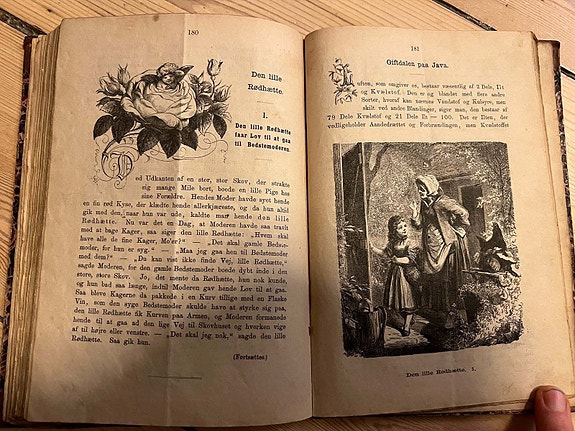 180
Den lille
Rødhætte.
I.
Den lille Rødhætte
faar Lov til at gaa
til Bedstemoderen.
Ved Udkanten af en stor, stor Skov, der strakte
sig mange Mile bort, boede en lille Pige hos
sine Forældre. Hendes Moder havde syet hende
en fin rød Kyse, der klædte hende allerkjæreste, og da hun altid
gik med den, naar hun var ude, kaldte man hende den lille
Rødhætte. Nu var det en Dag, at Moderen havde saa travlt
med at bage Kager, saa siger den lille Rødhætte: „Hvem skal
have alle de fine Kager, Mo'er?“ — „Det skal gamle Bedste-
moder, for hun er syg.“ — „Maa jeg gaa hen til Bedstemoder
med dem?“ — „Du kan vist ikke finde Vej, lille Rødhætte,“
sagde Moderen, for den gamle Bedstemoder boede dybt inde i den
store, store Skov. Jo, det mente da Rødhætte, hun nok kunde,
og hun bad saa længe, indtil Moderen gav hende Lov til at gaa.
Saa bleve Kagerne da pakkede i en Kurv tillige med en Flaske
Vin, som den syge Bedstemoder skulde have at styrke sig paa,
den lille Rødhætte fik Kurven paa Armen, og Moderen formanede
hende til at gaa ad den lige Vej til Skovhuset og hverken vige
af til højre eller venstre. — „Det skal jeg nok,“ sagde den lille
Rødhætte. Saa gik hun.
(Fortsættes)
181
Giftdalen paa Java.
Luften, som omgiver os, bestaar væsentlig af 2 Dele, Ilt
og Kvælstof. Den er og blandet med flere andre
Sorter, hvoraf kan nævnes Vandstof og Kulsyre, men
skilt ved andre Blandinger, siger man, den bestaar af
79 Dele Kvælstof og 21 Dele Ilt — 100. Det er Ilten, der
vedligeholder Aandedrættet og Forbrændingen, men Kvælstoffet
Den lille Rødhætte. 1.